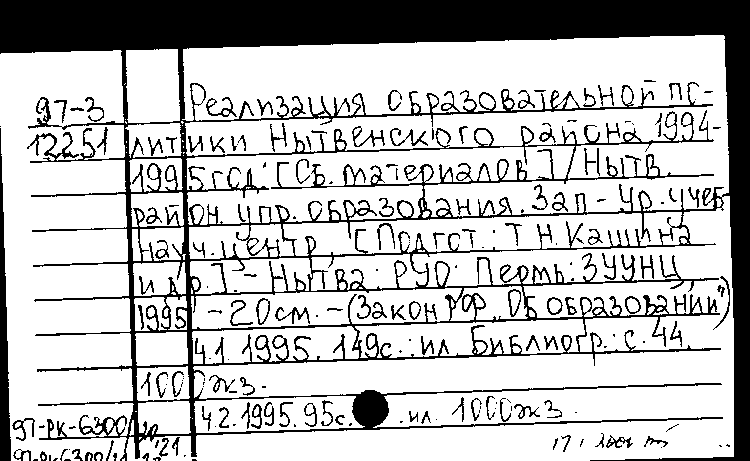 97-3 Реализация образовательной по-
12251 литики Нытвенского района, 1994-
1995 год: [Сб. материалов] / Нытв.
район. упр. образования. Зап-Ур. учеб.-
науч. центр, [Подгот.: Т.Н. Кашина
и др.]. - Нытва: РУО: Пермь: ЗУУНЦ,
1995. - 20см. - (Закон РФ "Об образовании")
Ч.1. 1995. 149с.: ил. Библиогр.: с. 44.
1000экз.
Ч.2. 1995. 95с. ил. 1000экз.
97-РК-6300/20
97-РК6300/21 '21.